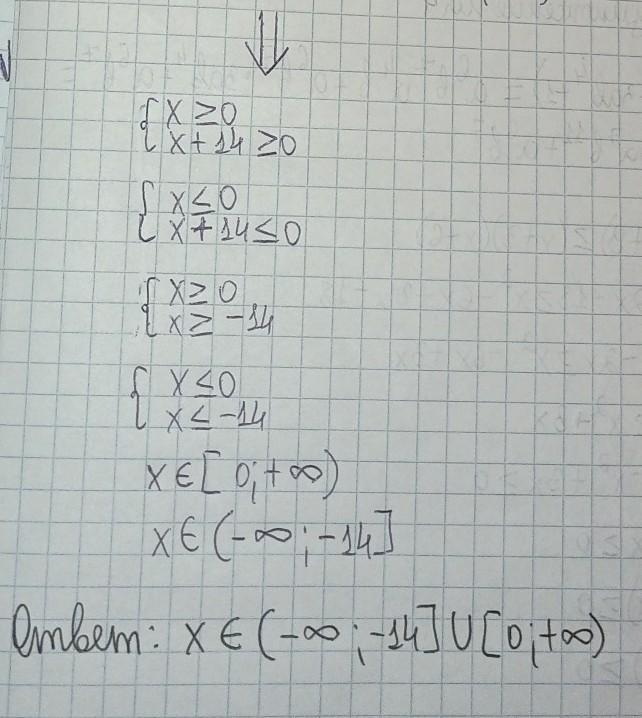 ⇓
{ x ≥ 0
x + 14 ≥ 0
{ x ≤ 0
x + 14 ≤ 0
{ x ≥ 0
x ≥ -14
{ x ≤ 0
x ≤ -14
x ∈ [ 0; +∞)
x ∈ (-∞; -14]
Ответ: x ∈ (-∞; -14] U [0; +∞)